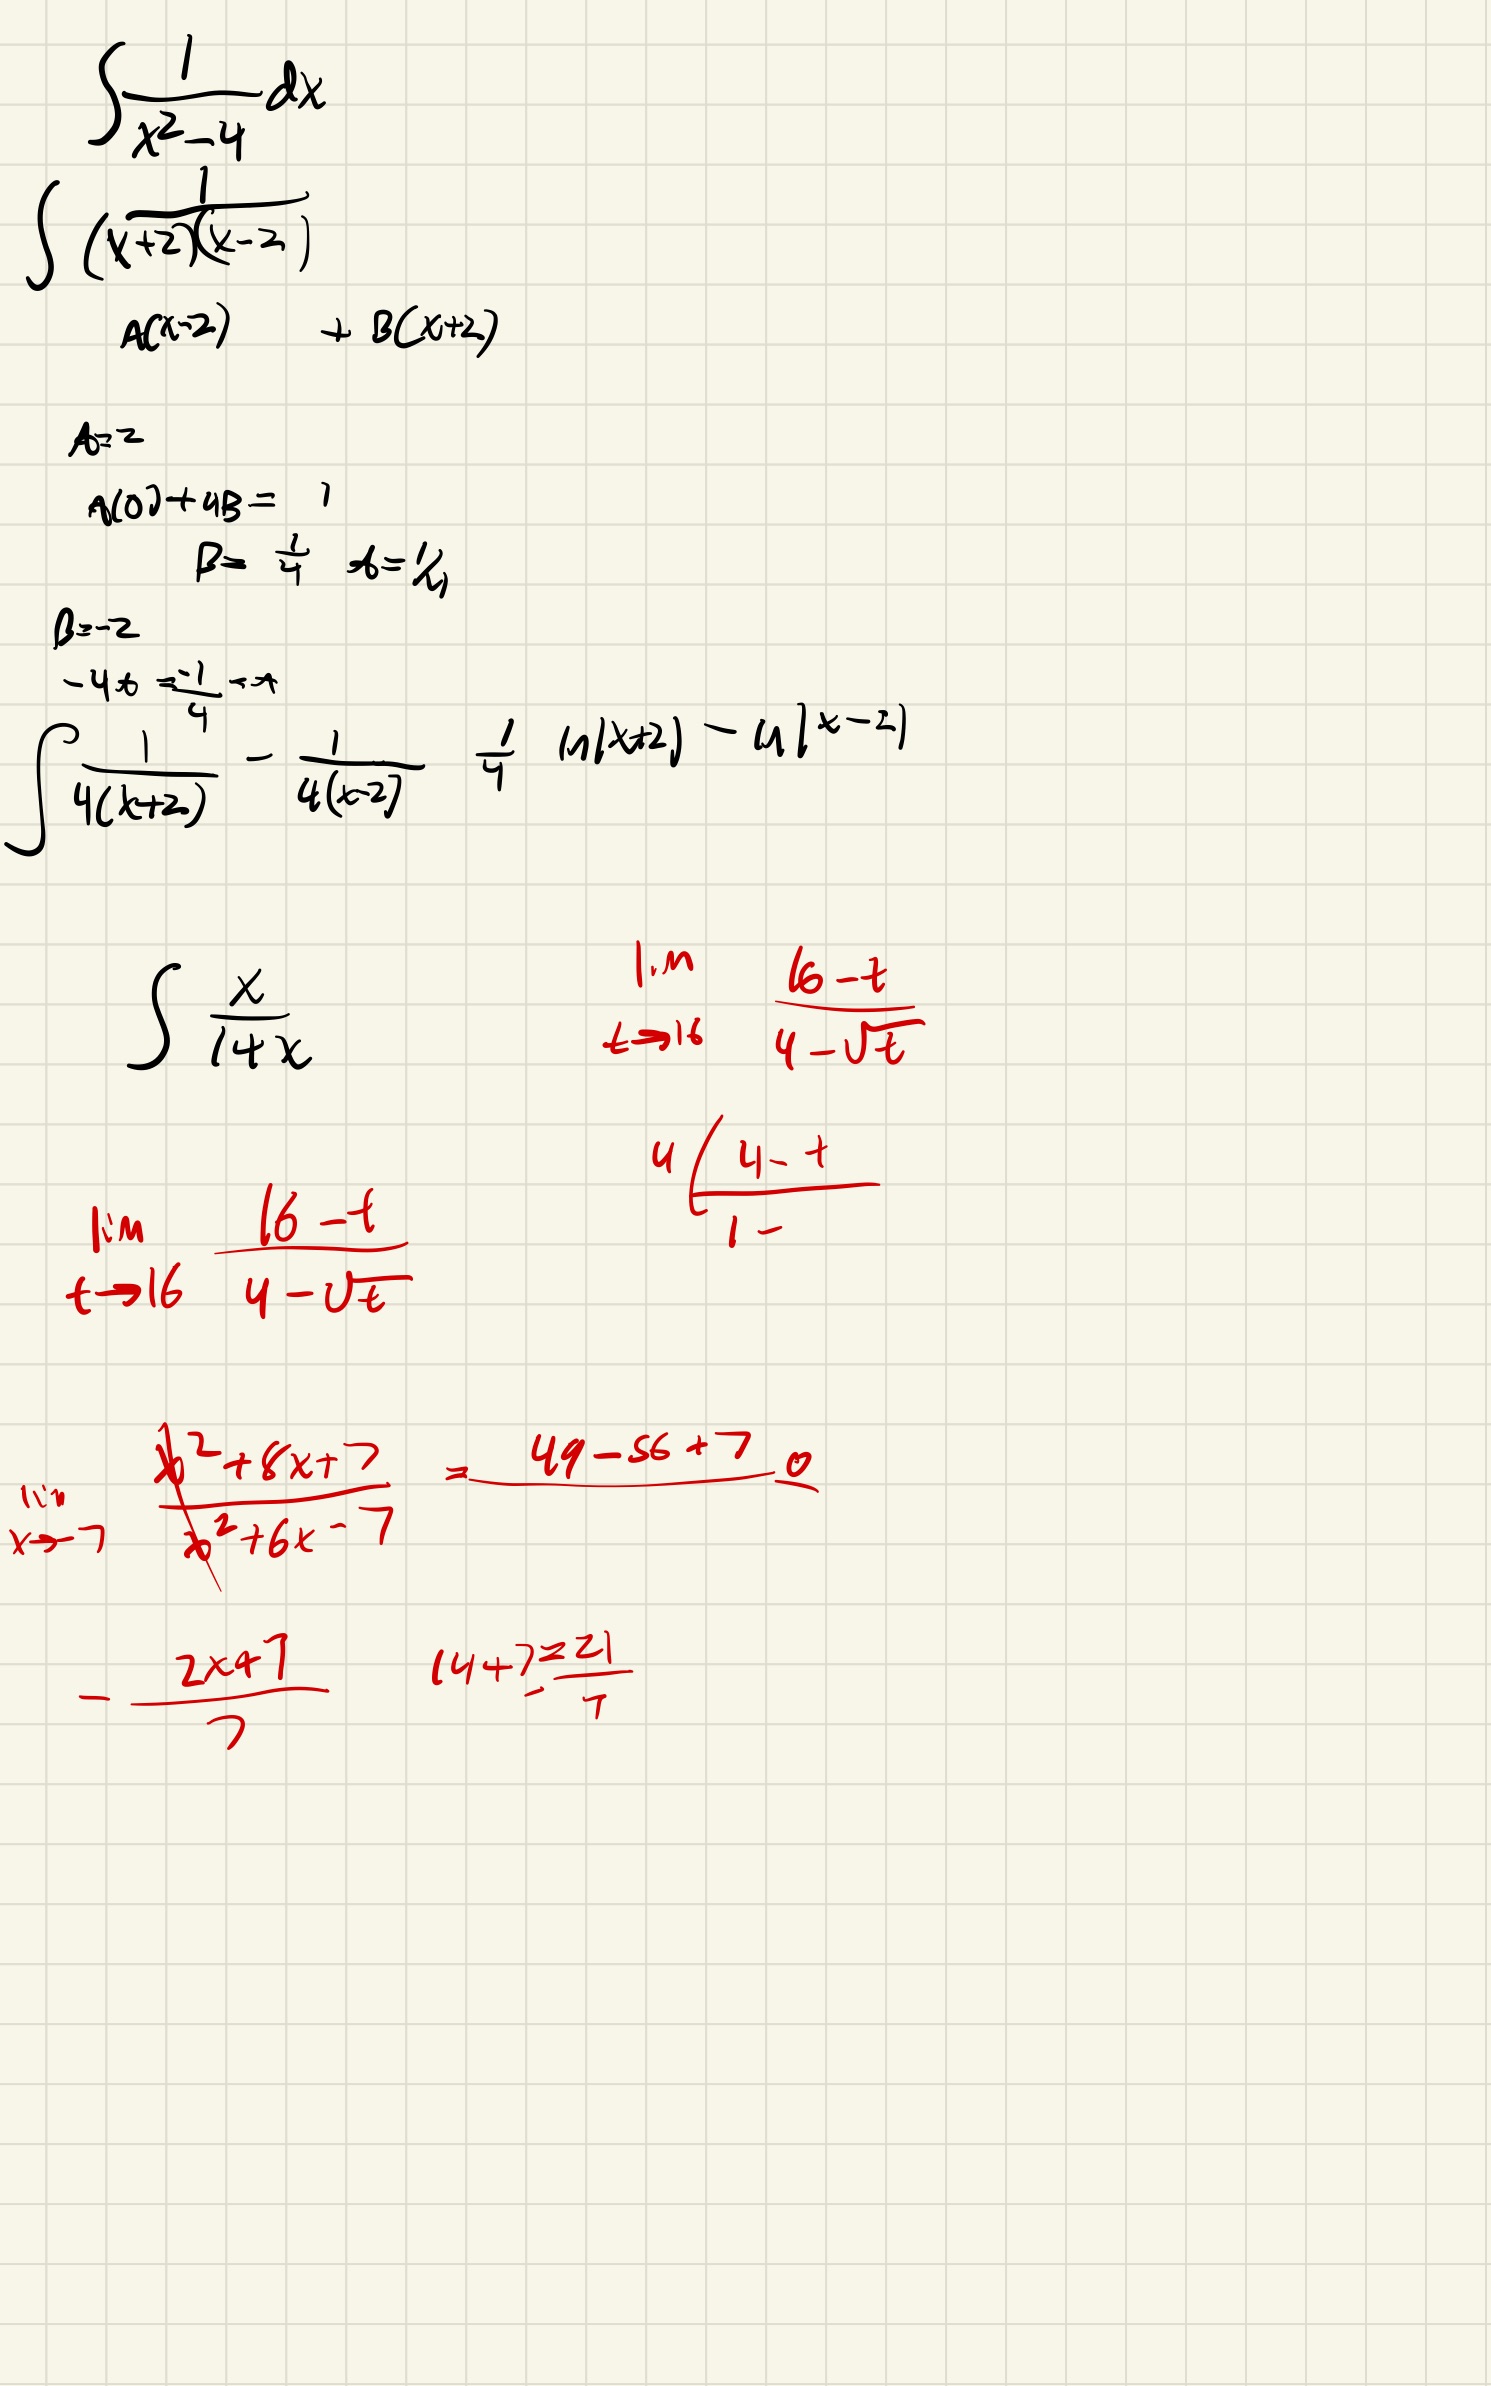 ∫ 1/(x²-4) dx
∫ 1/((x+2)(x-2))
A(x-2) + B(x+2)
A=2
A(0)+4B= 1
B= 1/4 A=1/4
B=-2
-4A = -1/4 = A
∫ 1/(4(x+2)) - 1/(4(x-2)) 1/4 ln|x+2| - ln|x-2|
∫ x/(1+x)
lim t→16 (16-t)/(4-√t)
4( (4-t)/(1-
lim t→16 (16-t)/(4-√t)
lim x→-7 (x²+8x+7)/(x²+6x-7) = (49-56+7)/ 0
- (2x+7)/7 14+7=21/7